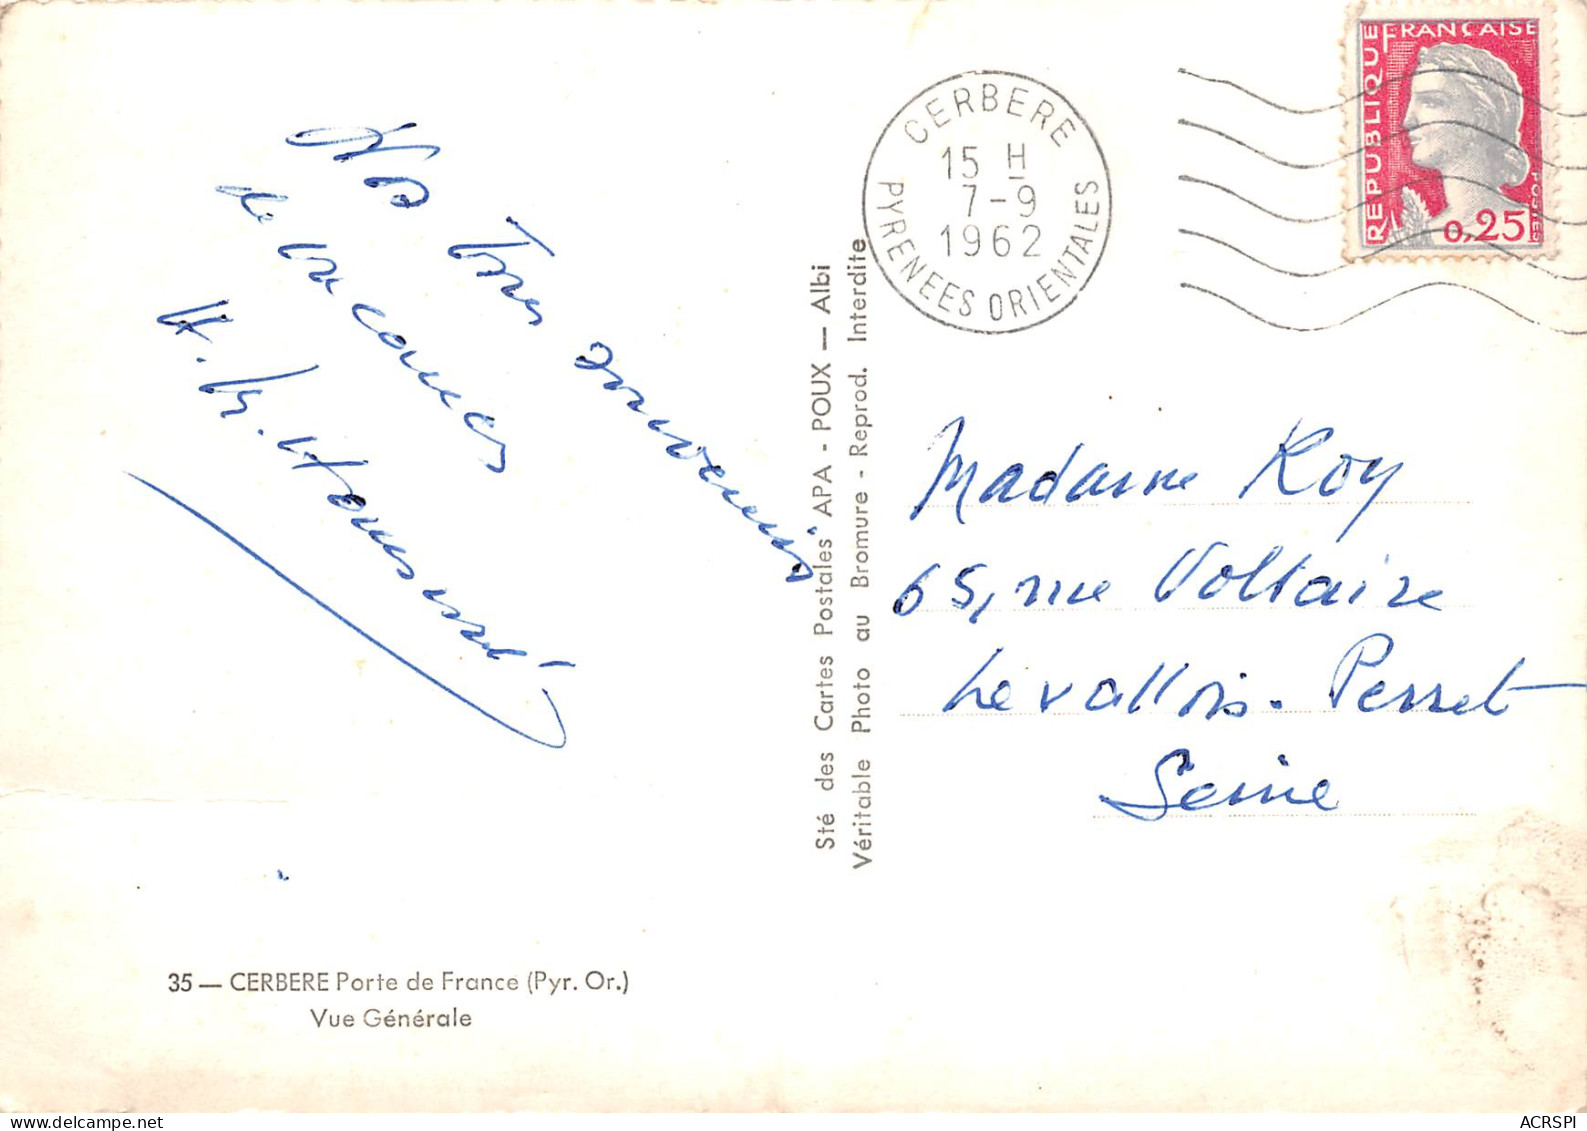 Nos bons souvenirs
de vacances
35 — CERBERE Porte de France (Pyr. Or.)
Vue Générale
Sté des Cartes Postales APA - POUX — Albi
Véritable Photo au Bromure - Reprod. Interdite
CERBERE
15 H
7-9
1962
PYRENEES ORIENTALES
REPUBLIQUE FRANÇAISE
POSTES
0,25
Madame Roy
65, rue Voltaire
Levallois-Perret
Seine
ACRSPI